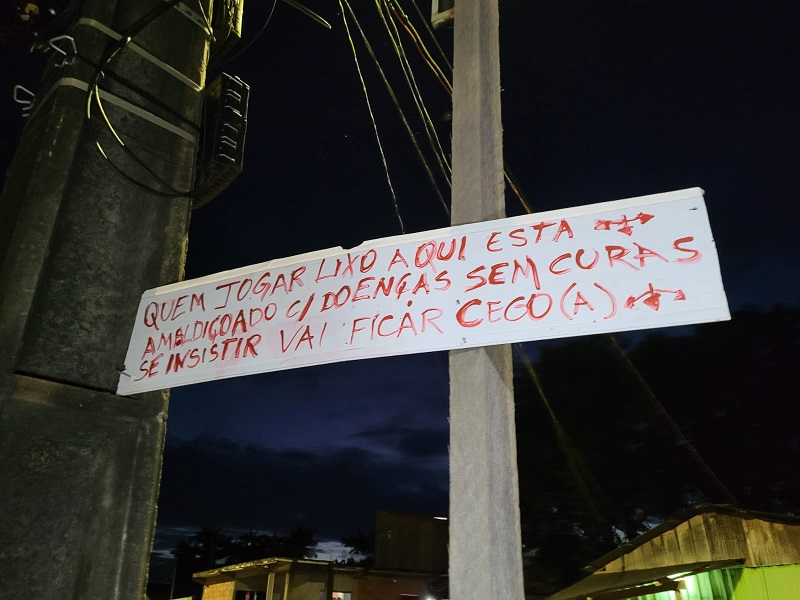 QUEM JOGAR LIXO AQUI ESTA
AMALDIÇOADO C/DOENÇAS SEM CURAS
SE INSISTIR VAI FICAR CEGO(A)